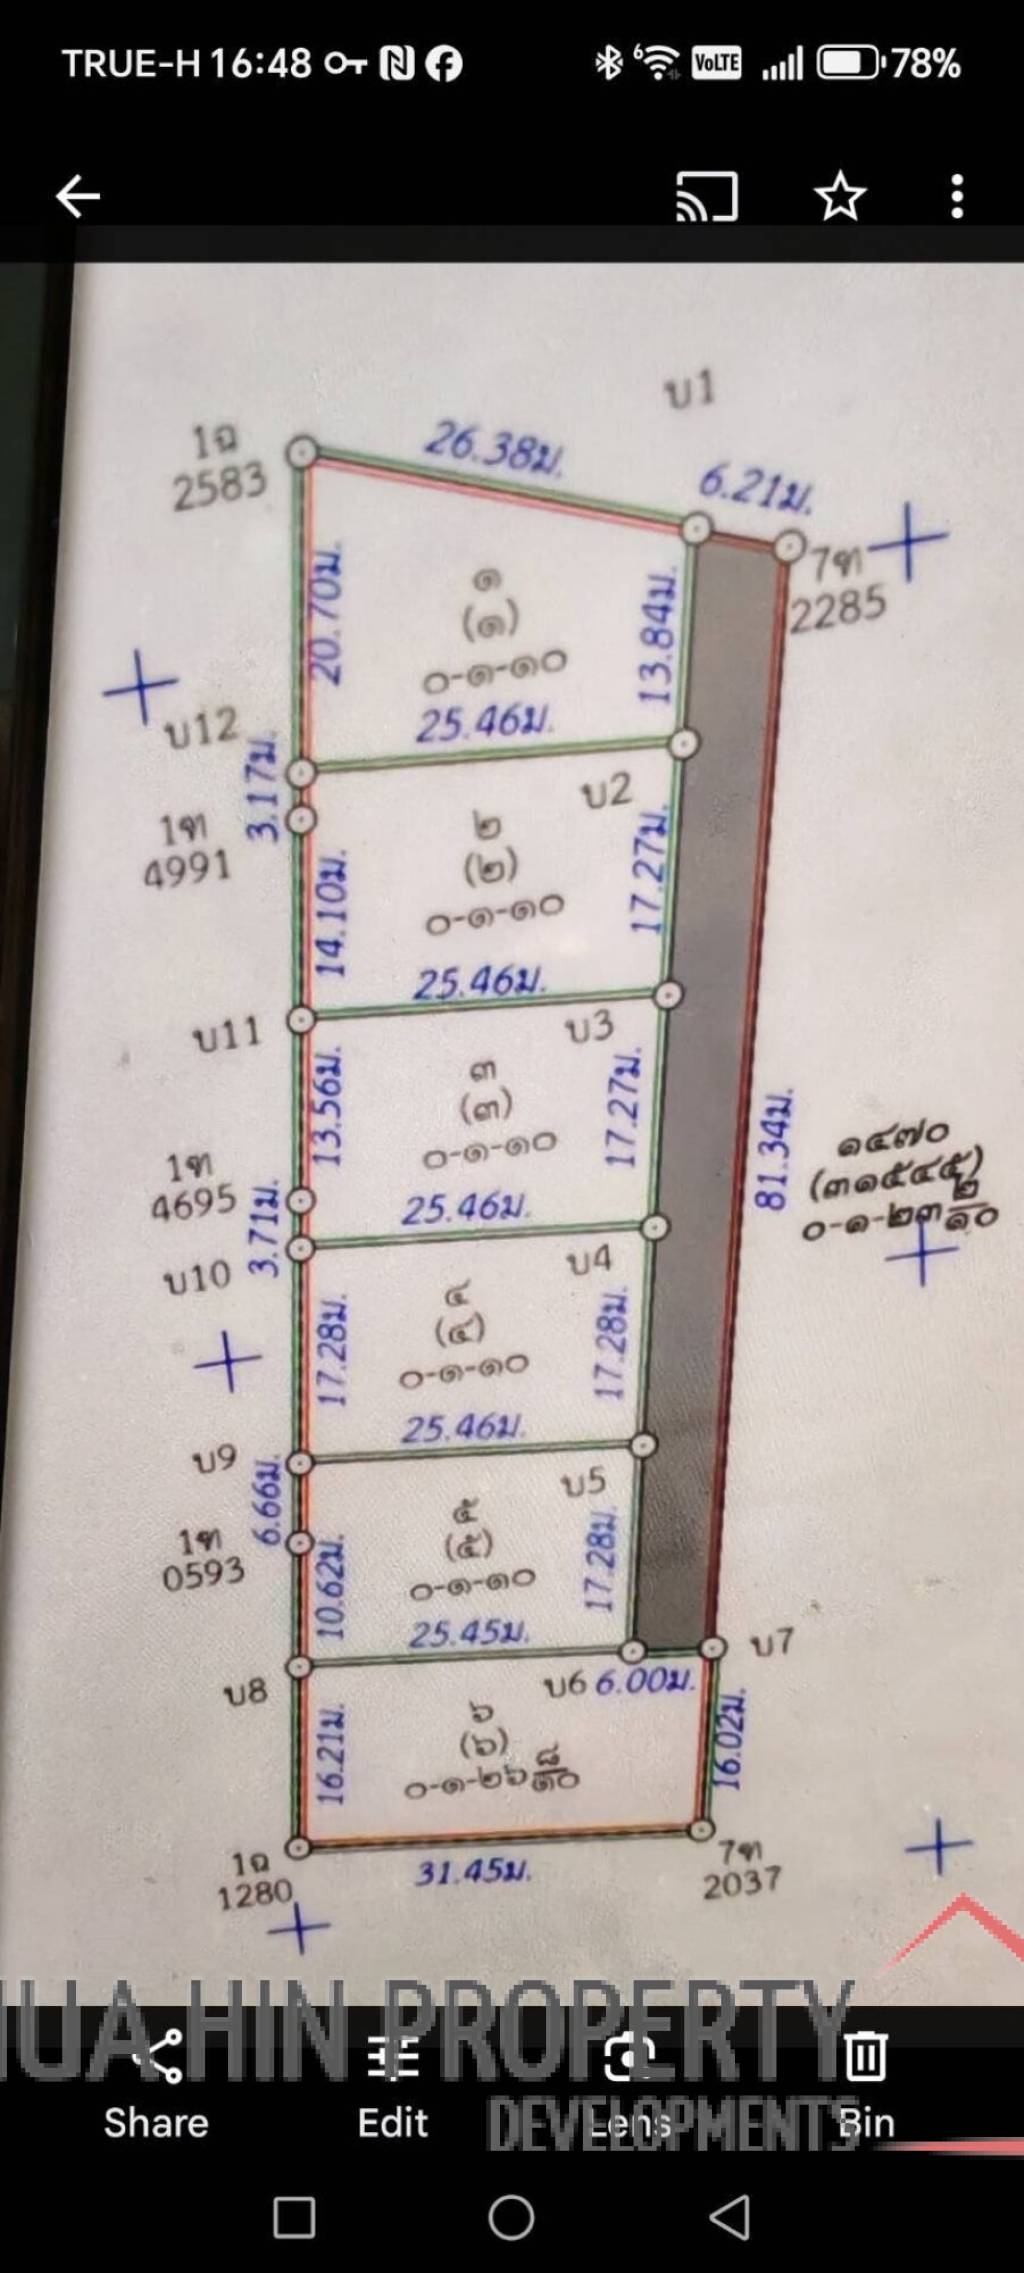 TRUE-H 16:48
6 VoLTE 78%
บ1
26.38ม.
6.21ม.
1ฉ
2583
7ฑ
2285
20.70ม.
๑
(๑)
๐-๑-๑๐
13.84ม.
25.46ม.
บ12
3.17ม.
บ2
1ฑ
4991
๒
(๒)
๐-๑-๑๐
14.10ม.
17.27ม.
25.46ม.
บ11
บ3
13.56ม.
๓
(๓)
๐-๑-๑๐
17.27ม.
81.34ม.
๑๔๗๐
(๓๑๕๔๕)
๐-๑-๒๓ ๒/๑๐
1ฑ
4695
25.46ม.
3.71ม.
บ10
บ4
๔
(๔)
๐-๑-๑๐
17.28ม.
17.28ม.
25.46ม.
บ9
บ5
6.66ม.
1ฑ
0593
๕
(๕)
๐-๑-๑๐
10.62ม.
17.28ม.
25.45ม.
บ7
บ8
บ6 6.00ม.
๖
(๖)
๐-๑-๒๖ ๘/๑๐
16.21ม.
16.02ม.
1ฉ
1280
31.45ม.
7ฑ
2037
HUA HIN PROPERTY
DEVELOPMENTS
Share Edit Lens Bin